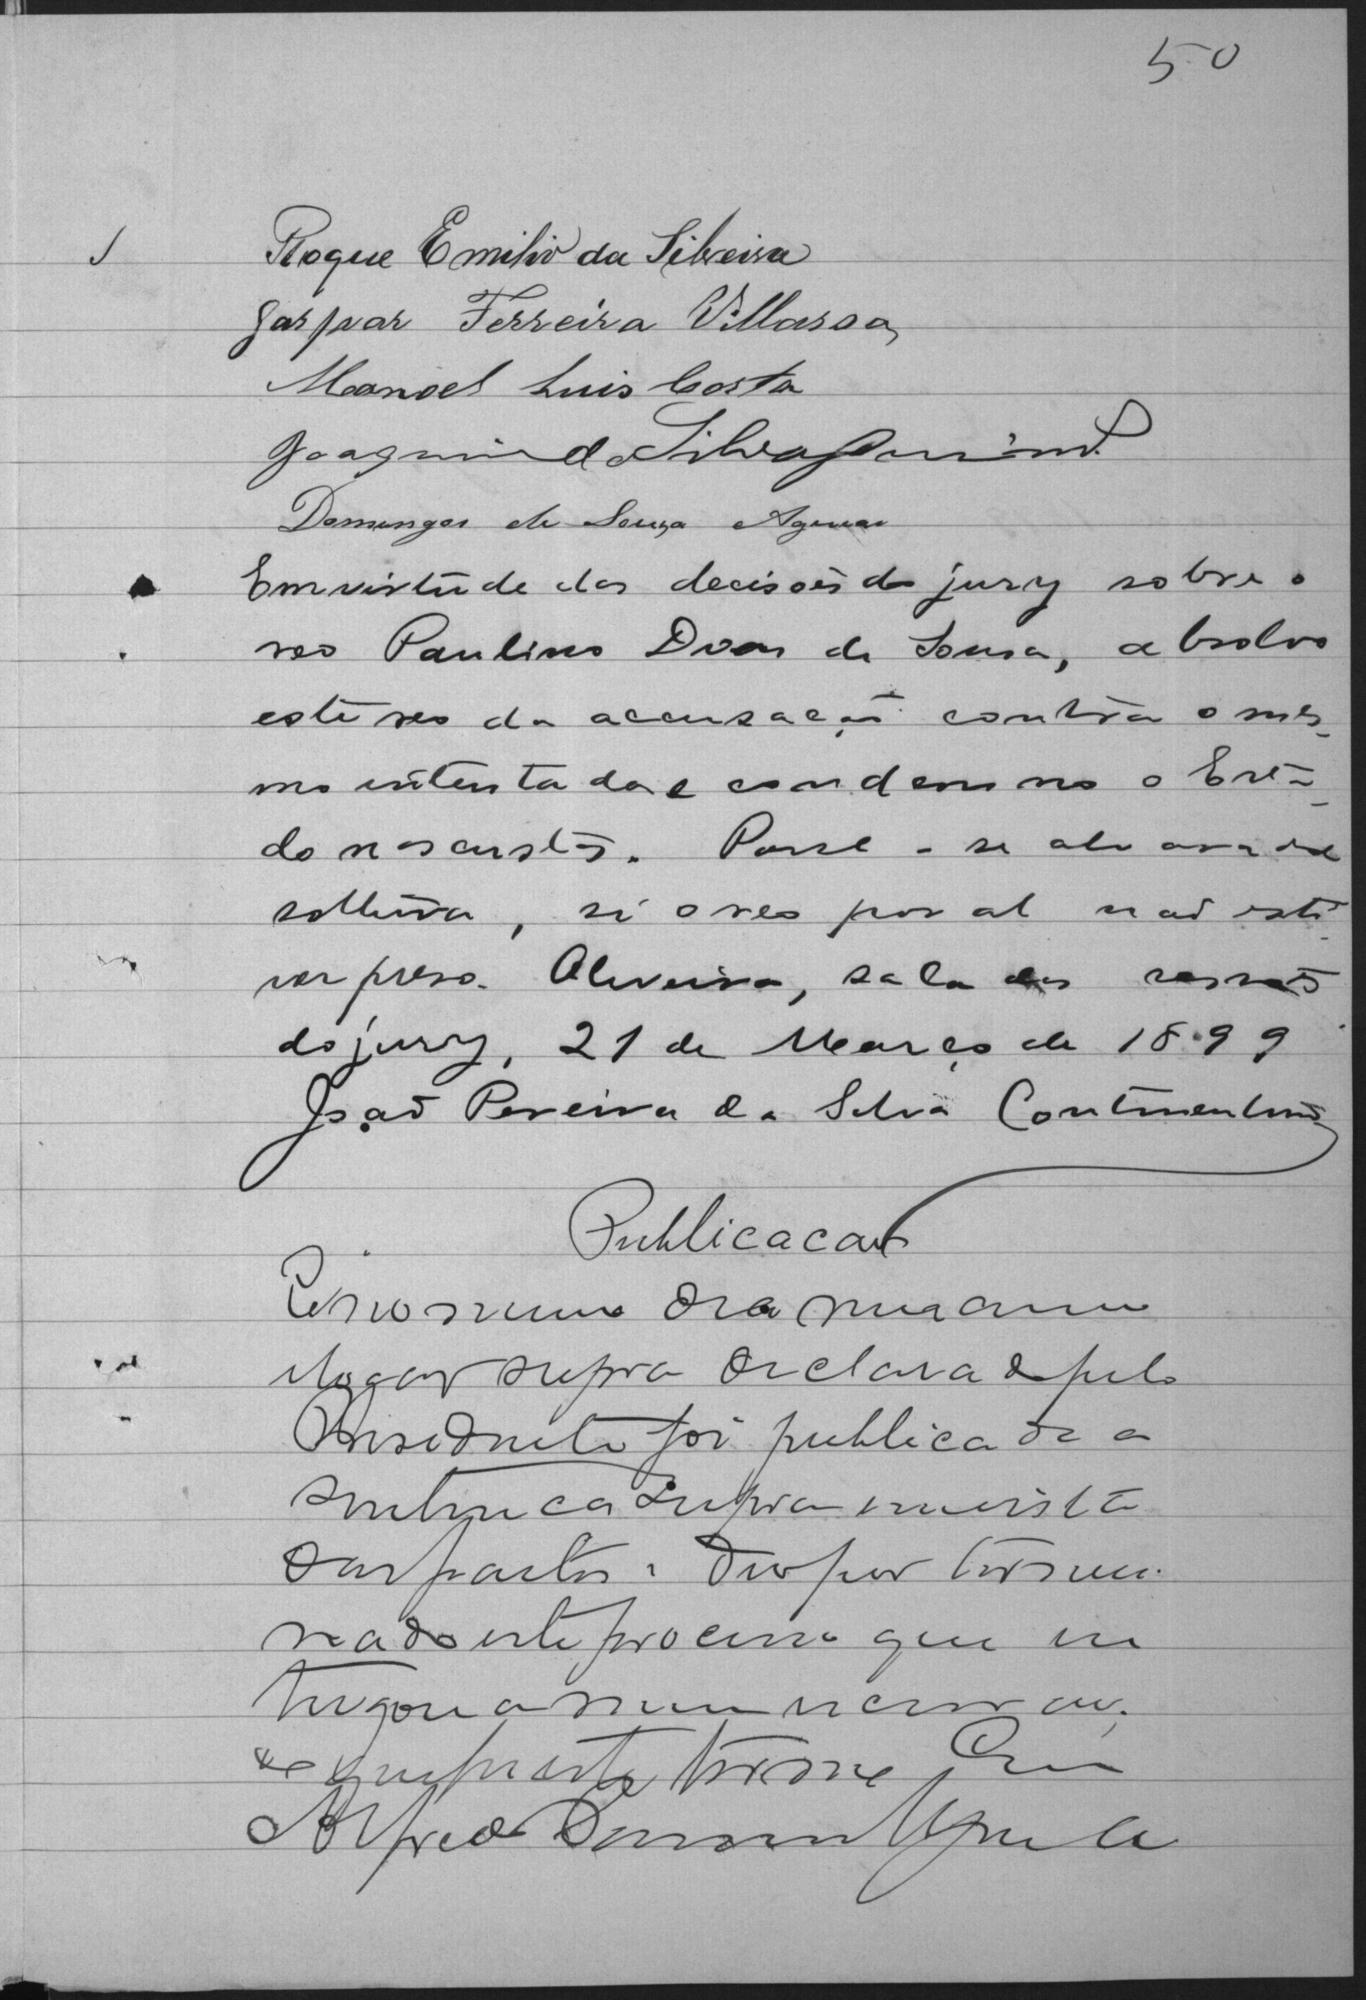 50
Roque Emilio da Silveira
Gaspar Ferreira Villassa
Manoel Luis Costa
Joaquim da Silva
Domingos de Souza Aguiar
Em virtude das decisões do jury sobre o
reo Paulino Dias de Sousa, absolvo
este reo da accusação contra o mes-
mo intentada e condemno o Esta-
do nas custas. Passe-se alvará de
soltura, si o reo por al não esti-
ver preso. Oliveira, sala das sessões
do jury, 21 de Março de 1899
João Pereira da Silva Continentino
Publicacão
E no mesmo dia mes anno
e logar supra declarado pelo
Presidente foi publicada a
sentenca supra em vista
das partes. Dou por termi-
nado este processo que en
faço este termo Eu
Alfredo